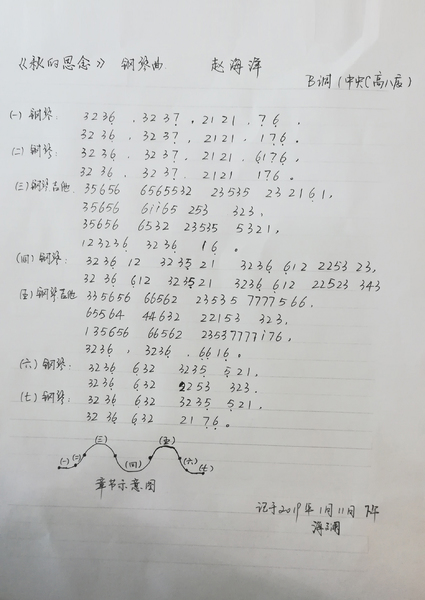 《秋的思念》 钢琴曲. 赵海洋
B调(中央C高八度)
(一) 钢琴: 3236, 3237, 2121, 76.
3236, 3237, 2121, 176.
(二) 钢琴: 3236, 3237, 2121, 6176.
3236, 3237, 2121 176.
(三) 钢琴吉他. 35656 6565532 23535 232161,
35656 61165 253 323.
35656 6532 23535 5321,
123236 3236 16。
(四) 钢琴: 3236 12 323521 3236 612 225323,
3236 612 323521 3236 612 22523 343
(五) 钢琴吉他 335656 66562 23535 7777566.
65564 44632 22153 323,
135656 66562 23537777176,
3236, 3236, 6616。
(六) 钢琴: 3236 632 3235 521,
3236 632 2253 323.
(七) 钢琴: 3236 632 3235 521,
3236 632 2176。
(三) (五)
(一) (二) (四) (六) (七)
章节示意图
记于2019年1月11日 下午